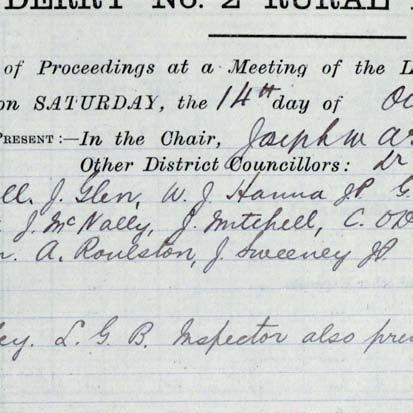 DERRY No. 2 RURAL
of Proceedings at a Meeting of the
on SATURDAY, the 14th day of
PRESENT:—In the Chair, Joseph
Other District Councillors: Dr
J. Glen, W. J. Hanna JP G.
J. McNally, J. Mitchell, C. O'D
A. Roulston, J. Sweeney JP
L. G. B. Inspector also pres